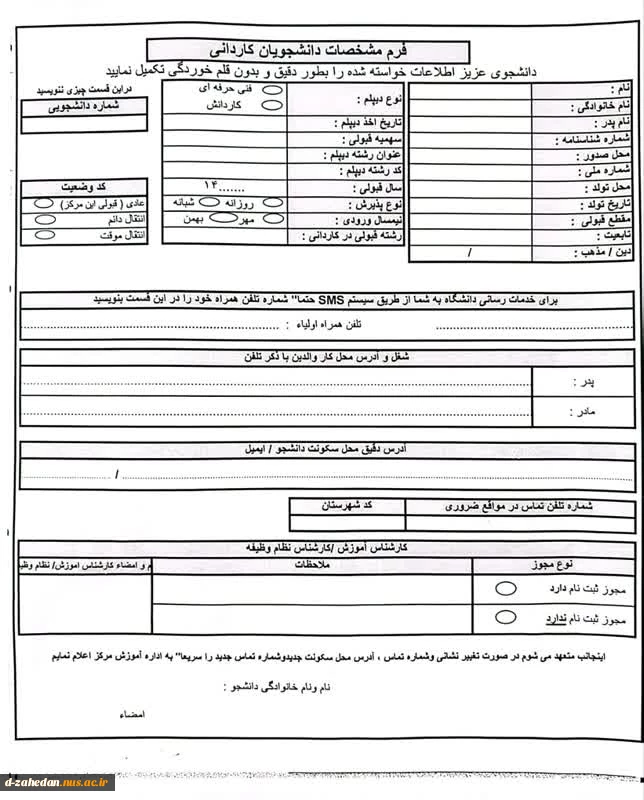 فرم مشخصات دانشجویان کاردانی
دانشجوی عزیز اطلاعات خواسته شده را بطور دقیق و بدون قلم خوردگی تکمیل نمایید
نام :
نام خانوادگی :
نام پدر :
شماره شناسنامه :
محل صدور :
شماره ملی :
محل تولد :
تاریخ تولد :
مقطع قبولی :
تابعیت :
دین / مذهب : /
نوع دیپلم : فنی حرفه ای
کاردانش
تاریخ اخذ دیپلم :
سهمیه قبولی :
عنوان رشته دیپلم :
کد رشته دیپلم :
سال قبولی : ۱۴.......
نوع پذیرش : روزانه شبانه
نیمسال ورودی : مهر بهمن
رشته قبولی در کاردانی :
دراین قسمت چیزی ننویسید
شماره دانشجویی
کد وضعیت
عادی ( قبولی این مرکز)
انتقال دائم
انتقال موقت
برای خدمات رسانی دانشگاه به شما از طریق سیستم SMS حتما" شماره تلفن همراه خود را در این قسمت بنویسید
تلفن همراه اولیاء :
شغل و آدرس محل کار والدین با ذکر تلفن
پدر :
مادر :
آدرس دقیق محل سکونت دانشجو / ایمیل
/
شماره تلفن تماس در مواقع ضروری کد شهرستان
کارشناس آموزش /کارشناس نظام وظیفه
نوع مجوز ملاحظات م و امضاء کارشناس اموزش/ نظام وظی
مجوز ثبت نام دارد
مجوز ثبت نام ندارد
اینجانب متعهد می شوم در صورت تغییر نشانی وشماره تماس ، آدرس محل سکونت جدیدوشماره تماس جدید را سریعا" به اداره آموزش مرکز اعلام نمایم
نام ونام خانوادگی دانشجو :
امضاء
d-zahedan.nus.ac.ir